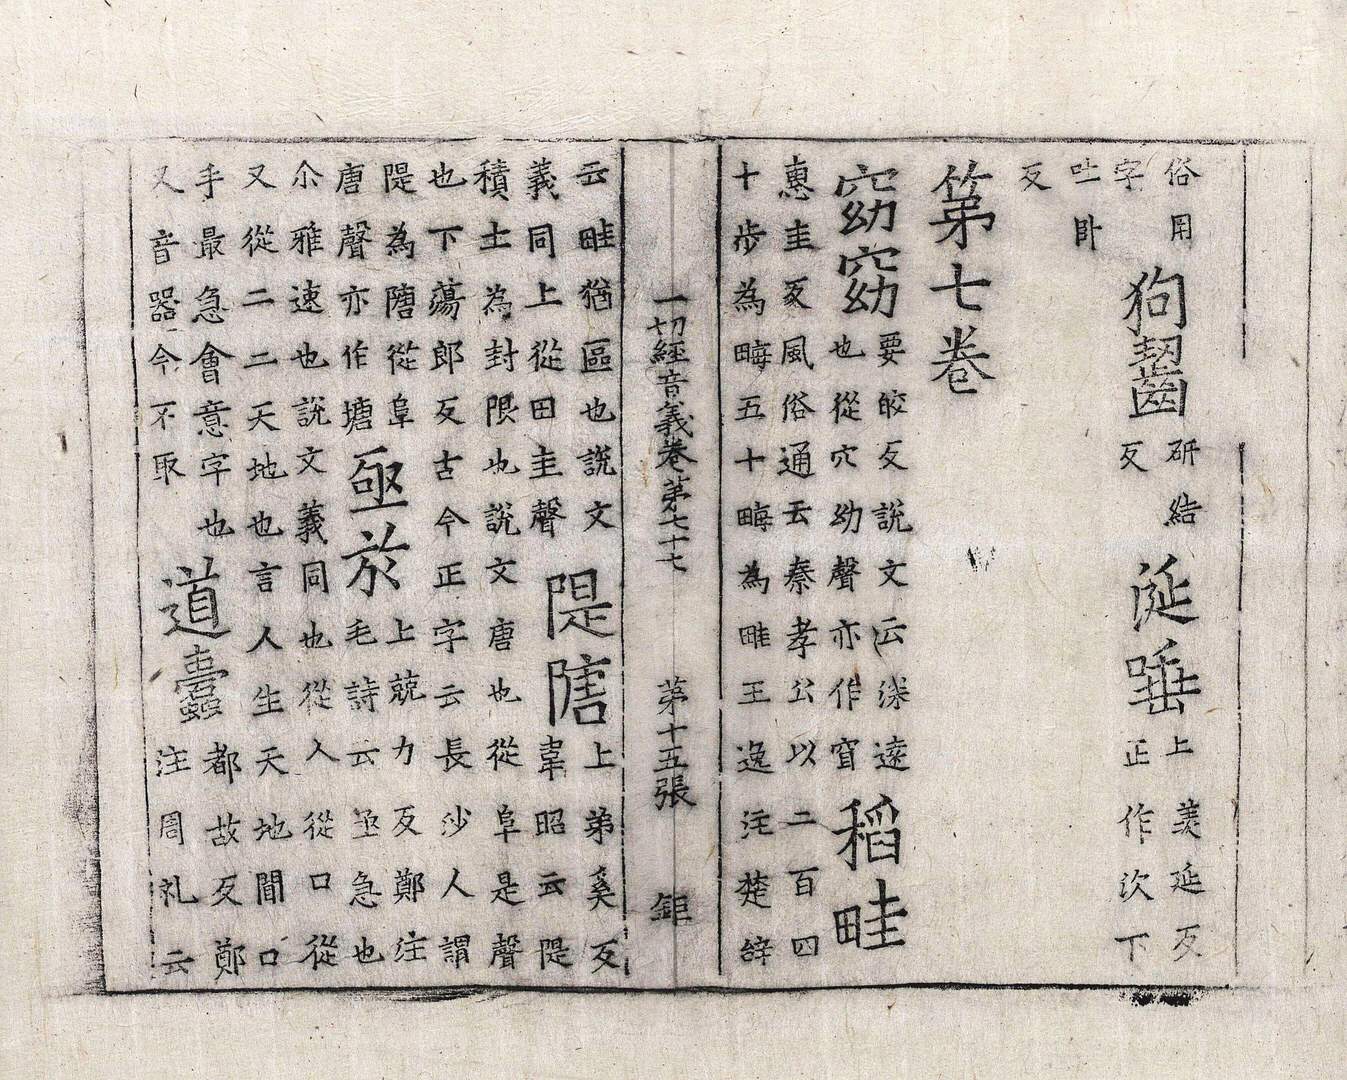 俗用
字
狗齧
研結
反
涎唾
上羨延反
正作次下
吐卧
反
第七卷
窈窈
要皎反說文云深遠
也從穴幼聲亦作窅
稻畦
惠圭反風俗通云秦孝公以二百四
十步為畮五十畮為畦王逸注楚辞
一切經音義卷第七十七 第十五張 鉅
云畦猶區也說文
義同上從田圭聲
隄
上弟奚反
韋昭云隄
積土為封限也說文唐也從阜是聲
也下蕩郎反古今正字云長沙人謂
隄為從阜
唐聲亦作塘
亟於
上兢力反鄭注
毛詩云亟急也
尒雅速也說文義同也從人從口從
又從二二天地也言人生天地間口
手最急會意字也
又音器今不取
道蠹
都故反鄭
注周礼云